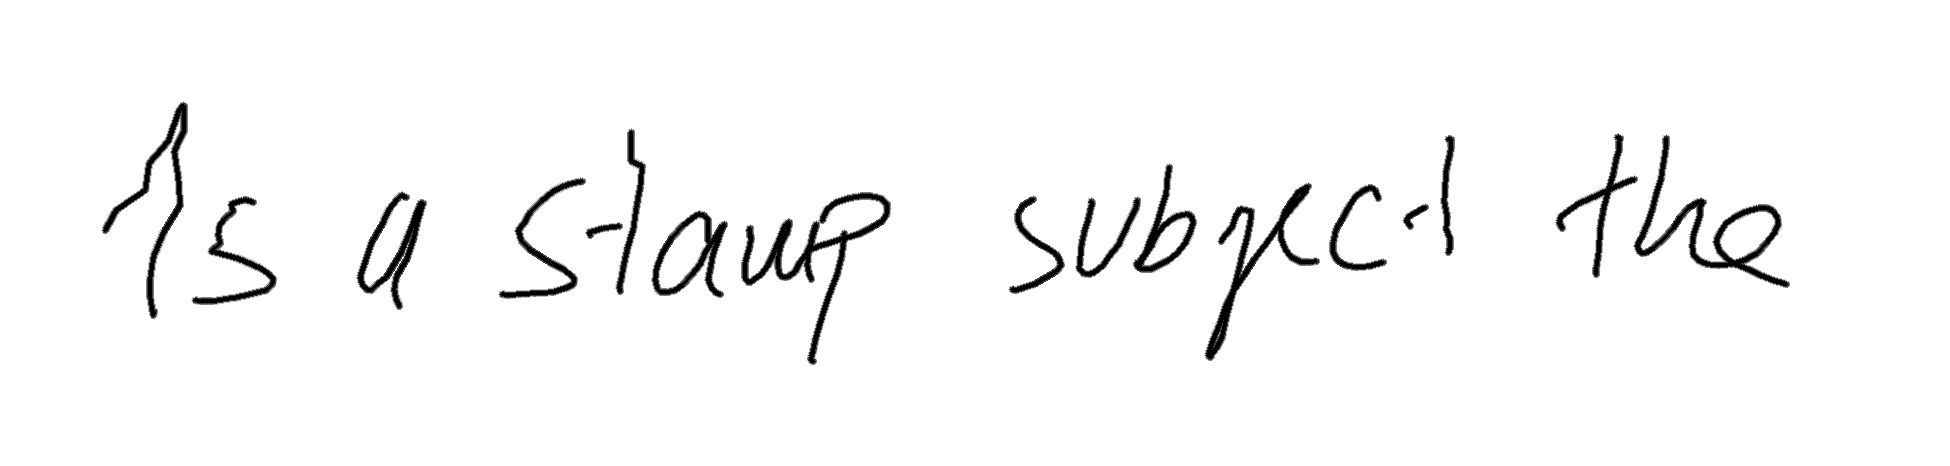 As a stamp subject the